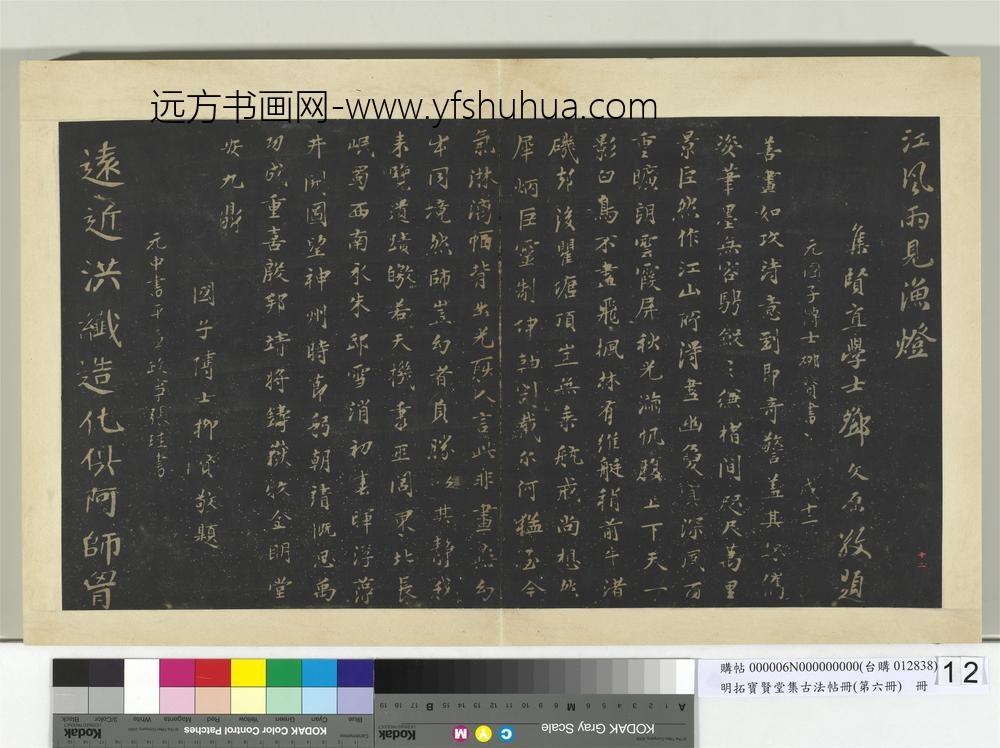 远方书画网-www.yfshuhua.com
江風雨見漁燈
集賢直學士鄧文原敬題
元國子博士柳貫書、戊十一
善畫如攻詩意到即奇警盖其
姿筆墨無容騁縱縱縑楮間咫尺萬里
景巨然作江山所淂盡幽夐深風雨
重曠朗雲霞屏秋光滿帆腹上下天一
影白鳥不盡飛楓林有維艇稍前牛渚
磯却後瞿塘頂豈無乘航戒尚想然
犀炳巨靈制坤軸割截尔何猛至今
氣淋漓幅背
言此非畫
本同境然師豈幻者負勝
其静我
来覽遺蹟皦若天機秉亞閣東北長
岷蜀西南永朱邸雪消初畫暉浮藻
井開圖望神州時節躬朝請慨思禹
功成重喜殷邦靖將鑄嶽牧金明堂
安九鼎
國子博士柳貫敬題
元中書平章政事張珪書
遠近洪纖造化供阿師胃
十二
購帖 000006N000000000(台購 012838)
明拓寶賢堂集古法帖冊(第六冊) 冊
12
Kodak
KODAK Color Control Patches
Blue
Cyan
Green
Yellow
Red
Magenta
White
3/Color
Black
Kodak
KODAK Gray Scale
C
Y
M
A 1 2 3 4 5 6 M 8 9 10 11 12 13 14 15 B 17 18 19